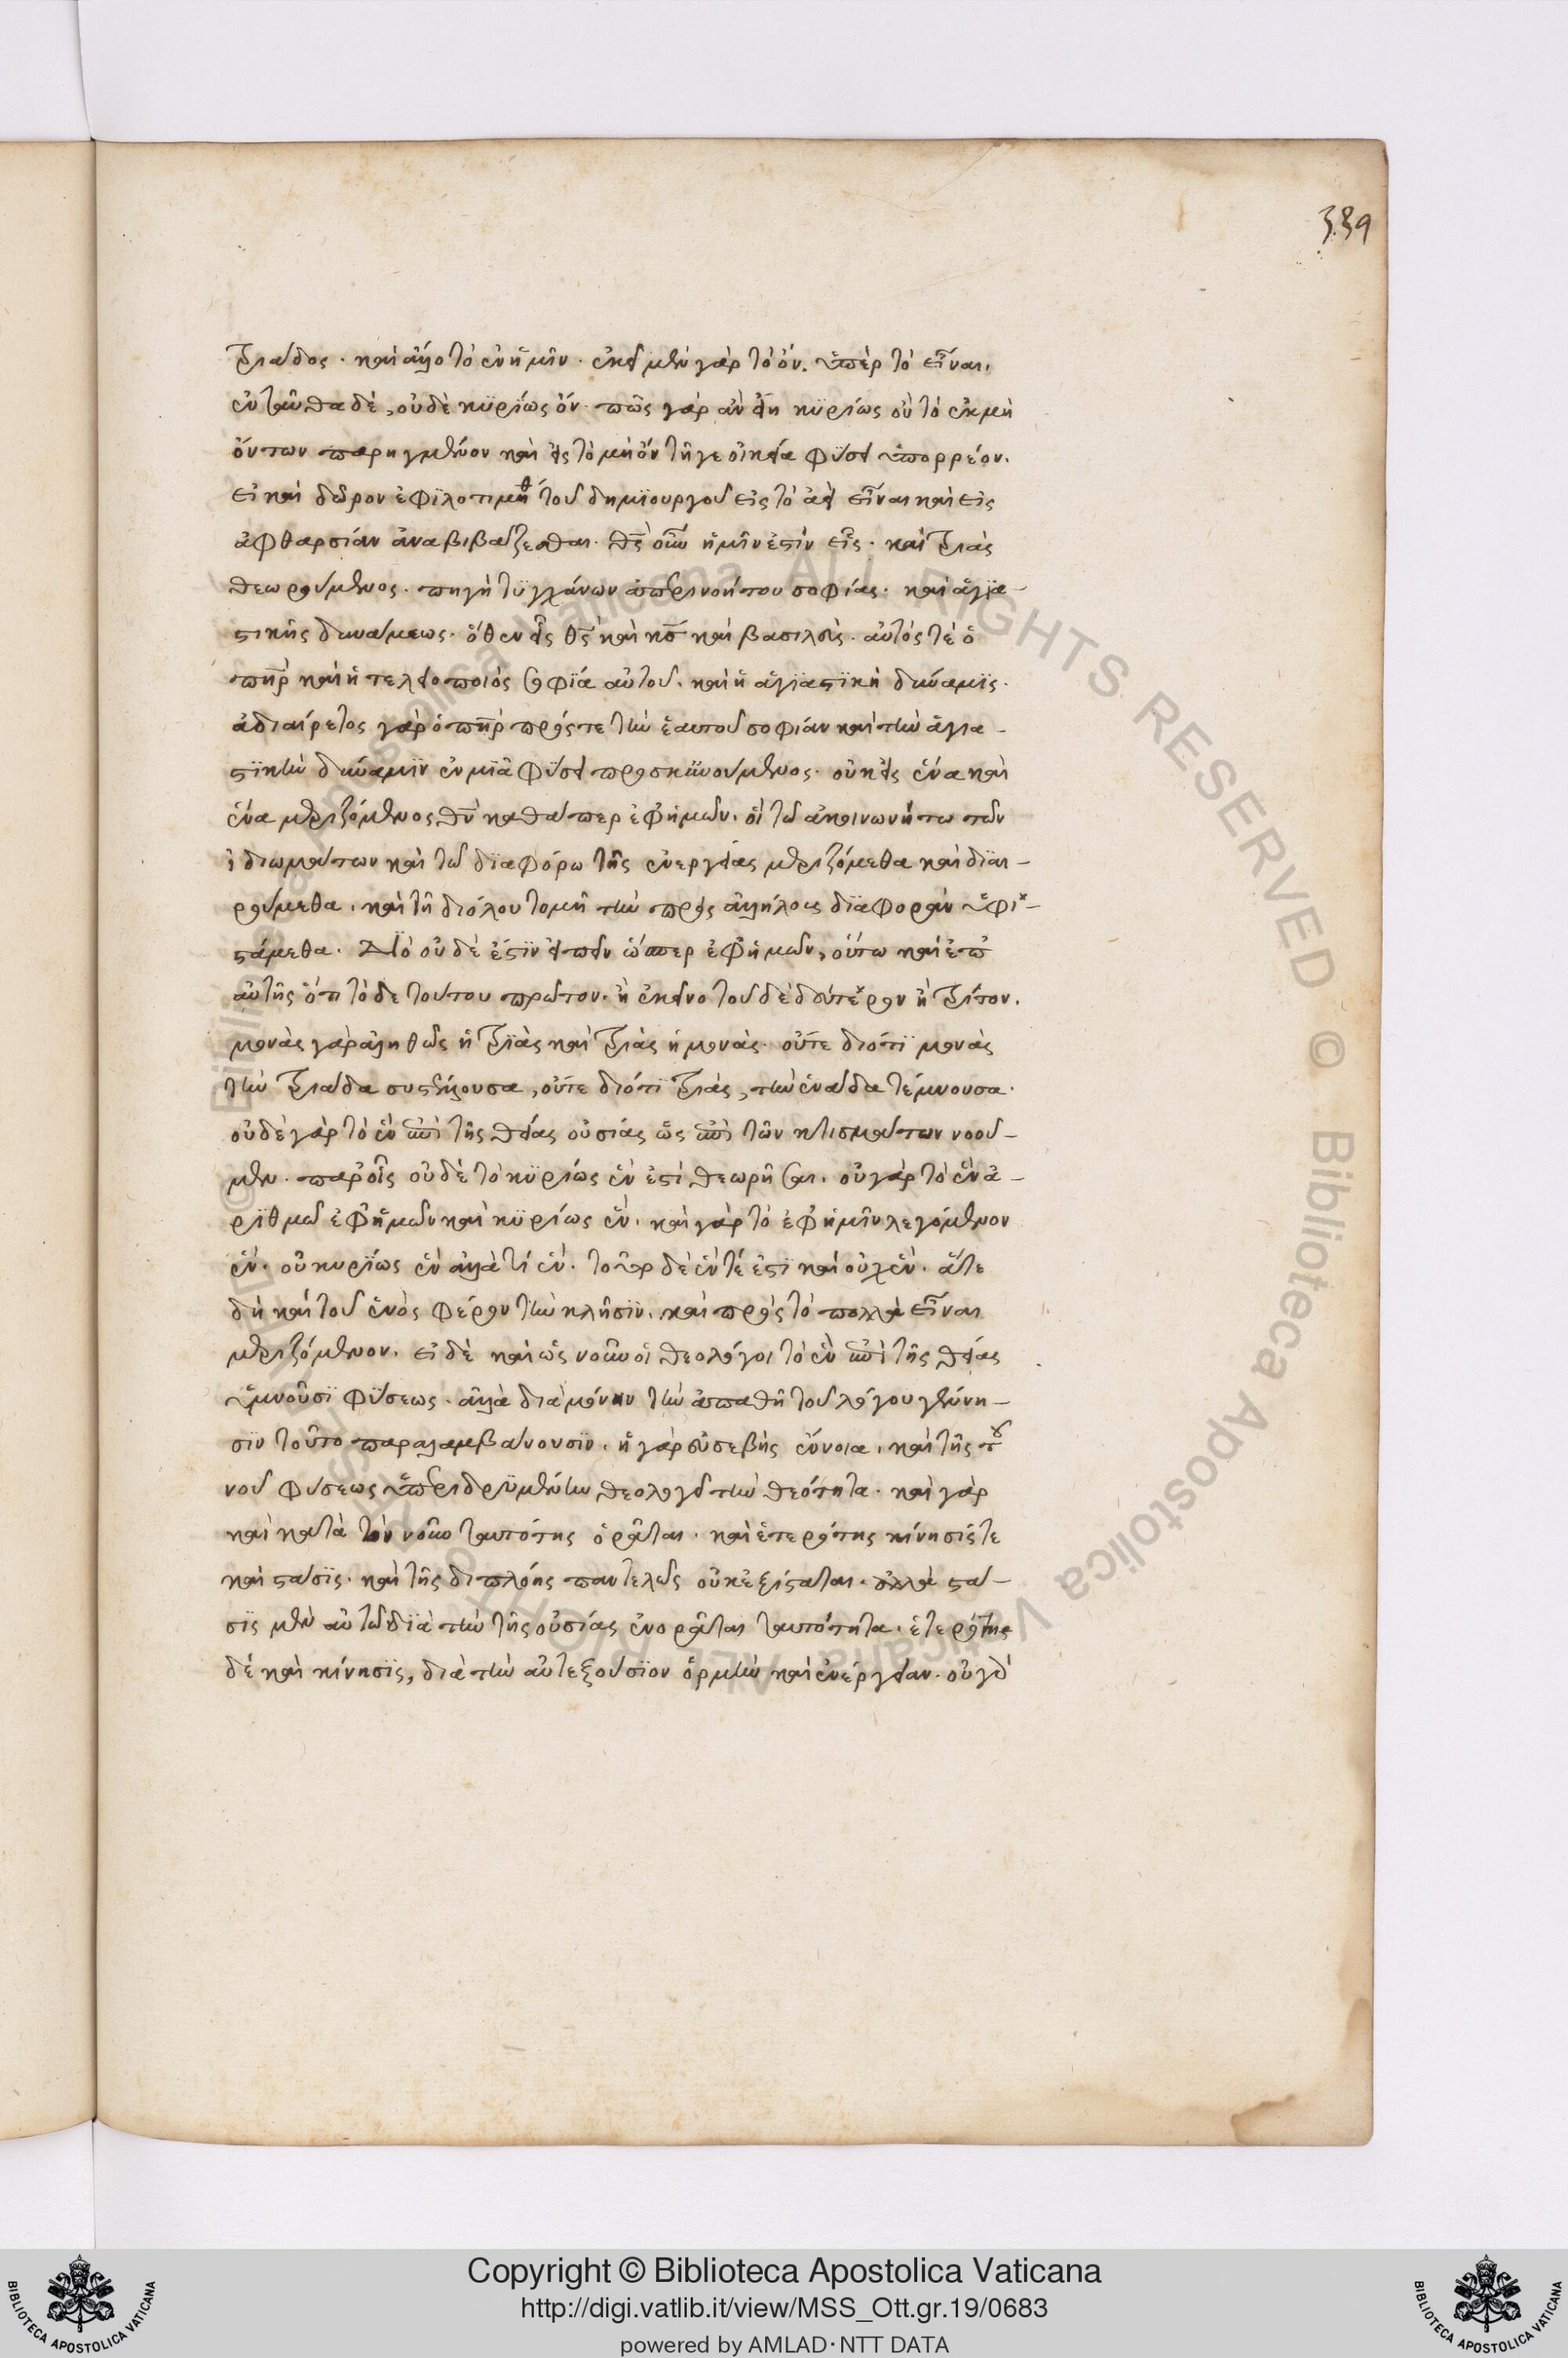 339
τριάδος· καὶ ἄλλο τὸ ἐν ἡμῖν· ἐκεῖ μὲν γὰρ τὸ ὄν, ὑπὲρ τὸ εἶναι,
ἐνταῦθα δὲ, οὐδὲ κυρίως ὄν· πῶς γὰρ ἂν εἴη κυρίως ὂν τὸ ἐκ μὴ
ὄντων παρηγμένον καὶ εἰς τὸ μὴ ὂν τῆ γε οἰκεία φύσει ὑπορρέον.
εἰ καὶ δῶρον ἐφιλοτιμήθη τοῦ δημιουργοῦ εἰς τὸ ἀεὶ εἶναι καὶ εἰς
ἀφθαρσίαν ἀναβιβάζεσθαι· θς οὖν ἡμῖν ἐστὶν εἷς· καὶ τριὰς
θεωρούμενος· πηγὴ τυγχάνων ἀπερινοήτου σοφίας· καὶ ἁγια-
στικῆς δυνάμεως· ὅθεν εἷς θς καὶ κς καὶ βασιλεύς· αὐτός τε ὁ
πηρ καὶ ἡ τελειοποιὸς σοφία αὐτοῦ· καὶ ἡ ἁγιαστικὴ δύναμις·
ἀδιαίρετος γὰρ ὁ πηρ πρός τε τὴν ἑαυτοῦ σοφίαν καὶ τὴν ἁγια-
στικὴν δύναμιν ἐν μιᾶ φύσει προσκυνούμενος· οὐκ εἰς ἕνα καὶ
ἕνα μεριζόμενος θν καθάπερ ἐφ' ἡμῶν· οἳ τῶ ἀκοινωνήτω τῶν
ἰδιωμάτων καὶ τῶ διαφόρω τῆς ἐνεργείας μεριζόμεθα καὶ διαι-
ρούμεθα· καὶ τῆ διόλου τομῆ τὴν πρὸς ἀλλήλους διαφορὰν ὑφι-
στάμεθα· Διὸ οὐδέ ἐστιν εἰπεῖν ὥσπερ ἐφ' ἡμῶν, οὕτω καὶ ἐπ'
αὐτῆς ὅτι τόδε τούτου πρῶτον· ἢ ἐκεῖνο τοῦδε δεύτερον ἢ τρίτον.
μονὰς γὰρ ἀληθῶς ἡ τριὰς καὶ τριὰς ἡ μονάς· οὔτε διότι μονὰς
τὴν τριάδα συστέλλουσα, οὔτε διότι τριὰς, τὴν ἑνάδα τέμνουσα·
οὐδὲ γὰρ τὸ ἓν ἐπὶ τῆς θείας οὐσίας ὡς ἐπὶ τῶν κτισμάτων νοοῦ-
μεν· παρ' οἷς οὐδὲ τὸ κυρίως ἕν ἐστι θεωρῆσαι· οὐ γὰρ τὸ ἓν ἀ-
ριθμῶ ἐφ' ἡμῶν καὶ κυρίως ἕν· καὶ γὰρ τὸ ἐφ' ἡμῖν λεγόμενον
ἕν· οὐ κυρίως ἓν ἀλλὰ τὶ ἕν· τὸ γὰρ δὲ ἕν τέ ἐστι καὶ οὐχ ἕν· ἅτε
δὴ καὶ τοῦ ἑνὸς φέρον τὴν κλῆσιν· καὶ πρὸς τὸ πολλὰ εἶναι
μεριζόμενον· εἰ δὲ καὶ ὡς νοῦν οἱ θεολόγοι τὸ ἓν ἐπὶ τῆς θείας
ὑμνοῦσι φύσεως· ἀλλὰ διὰ μόνην τὴν ἀπαθῆ τοῦ λόγου γέννη-
σιν τοῦτο παραλαμβάνουσιν· ἡ γὰρ εὐσεβὴς ἔννοια, καὶ τῆς τοῦ
νοῦ φύσεως ὑπεριδρυμένην θεολογεῖ τὴν θεότητα· καὶ γὰρ
καὶ κατὰ τὸν νοῦν ταυτότης ὁρᾶται· καὶ ἑτερότης κίνησίς τε
καὶ στάσις· καὶ τῆς διπλόης παντελῶς οὐκ ἐξίσταται· ἀλλὰ στά-
σις μὲν αὐτῶ διὰ τὴν τῆς οὐσίας ἐνορᾶται ταυτότητα· ἑτερότης
δὲ καὶ κίνησις, διὰ τὴν αὐτεξούσιον ὁρμὴν καὶ ἐνέργειαν· οὐ γὰρ
Copyright © Biblioteca Apostolica Vaticana
http://digi.vatlib.it/view/MSS_Ott.gr.19/0683
powered by AMLAD·NTT DATA